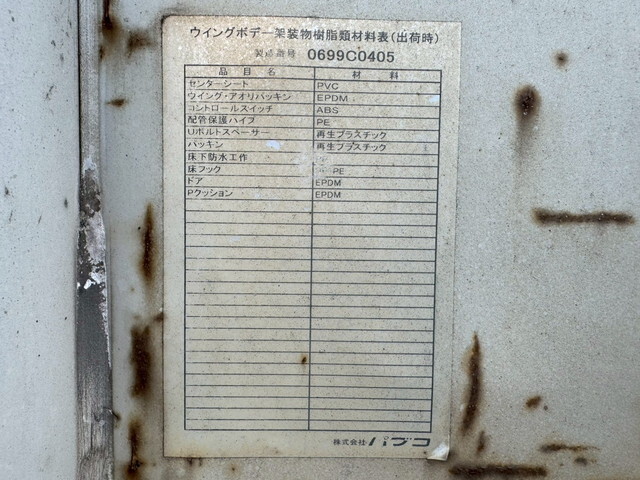 ウイングボデー架装物樹脂類材料表(出荷時)
製造番号 0699C0405
品目名 材料
センターシート PVC
ウイング・アオリパッキン EPDM
コントロールスイッチ ABS
配管保護パイプ PE
Uボルトスペーサー 再生プラスチック
パッキン 再生プラスチック
床下防水工作
床フック PE
ドア EPDM
Pクッション EPDM
株式会社パブコ